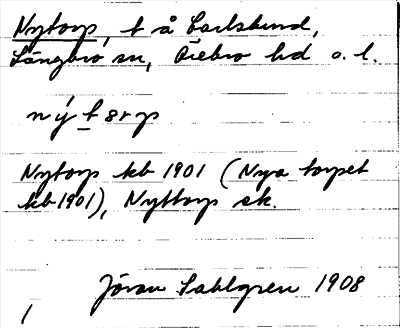 Nytorp, t å Carlslund,
Längbro sn, Örebro hd o. l.
nýtorp
Nytorp kb 1901 (Nya torpet
kb 1901), Nyttorp ek.
Jöran Sahlgren 1908
1